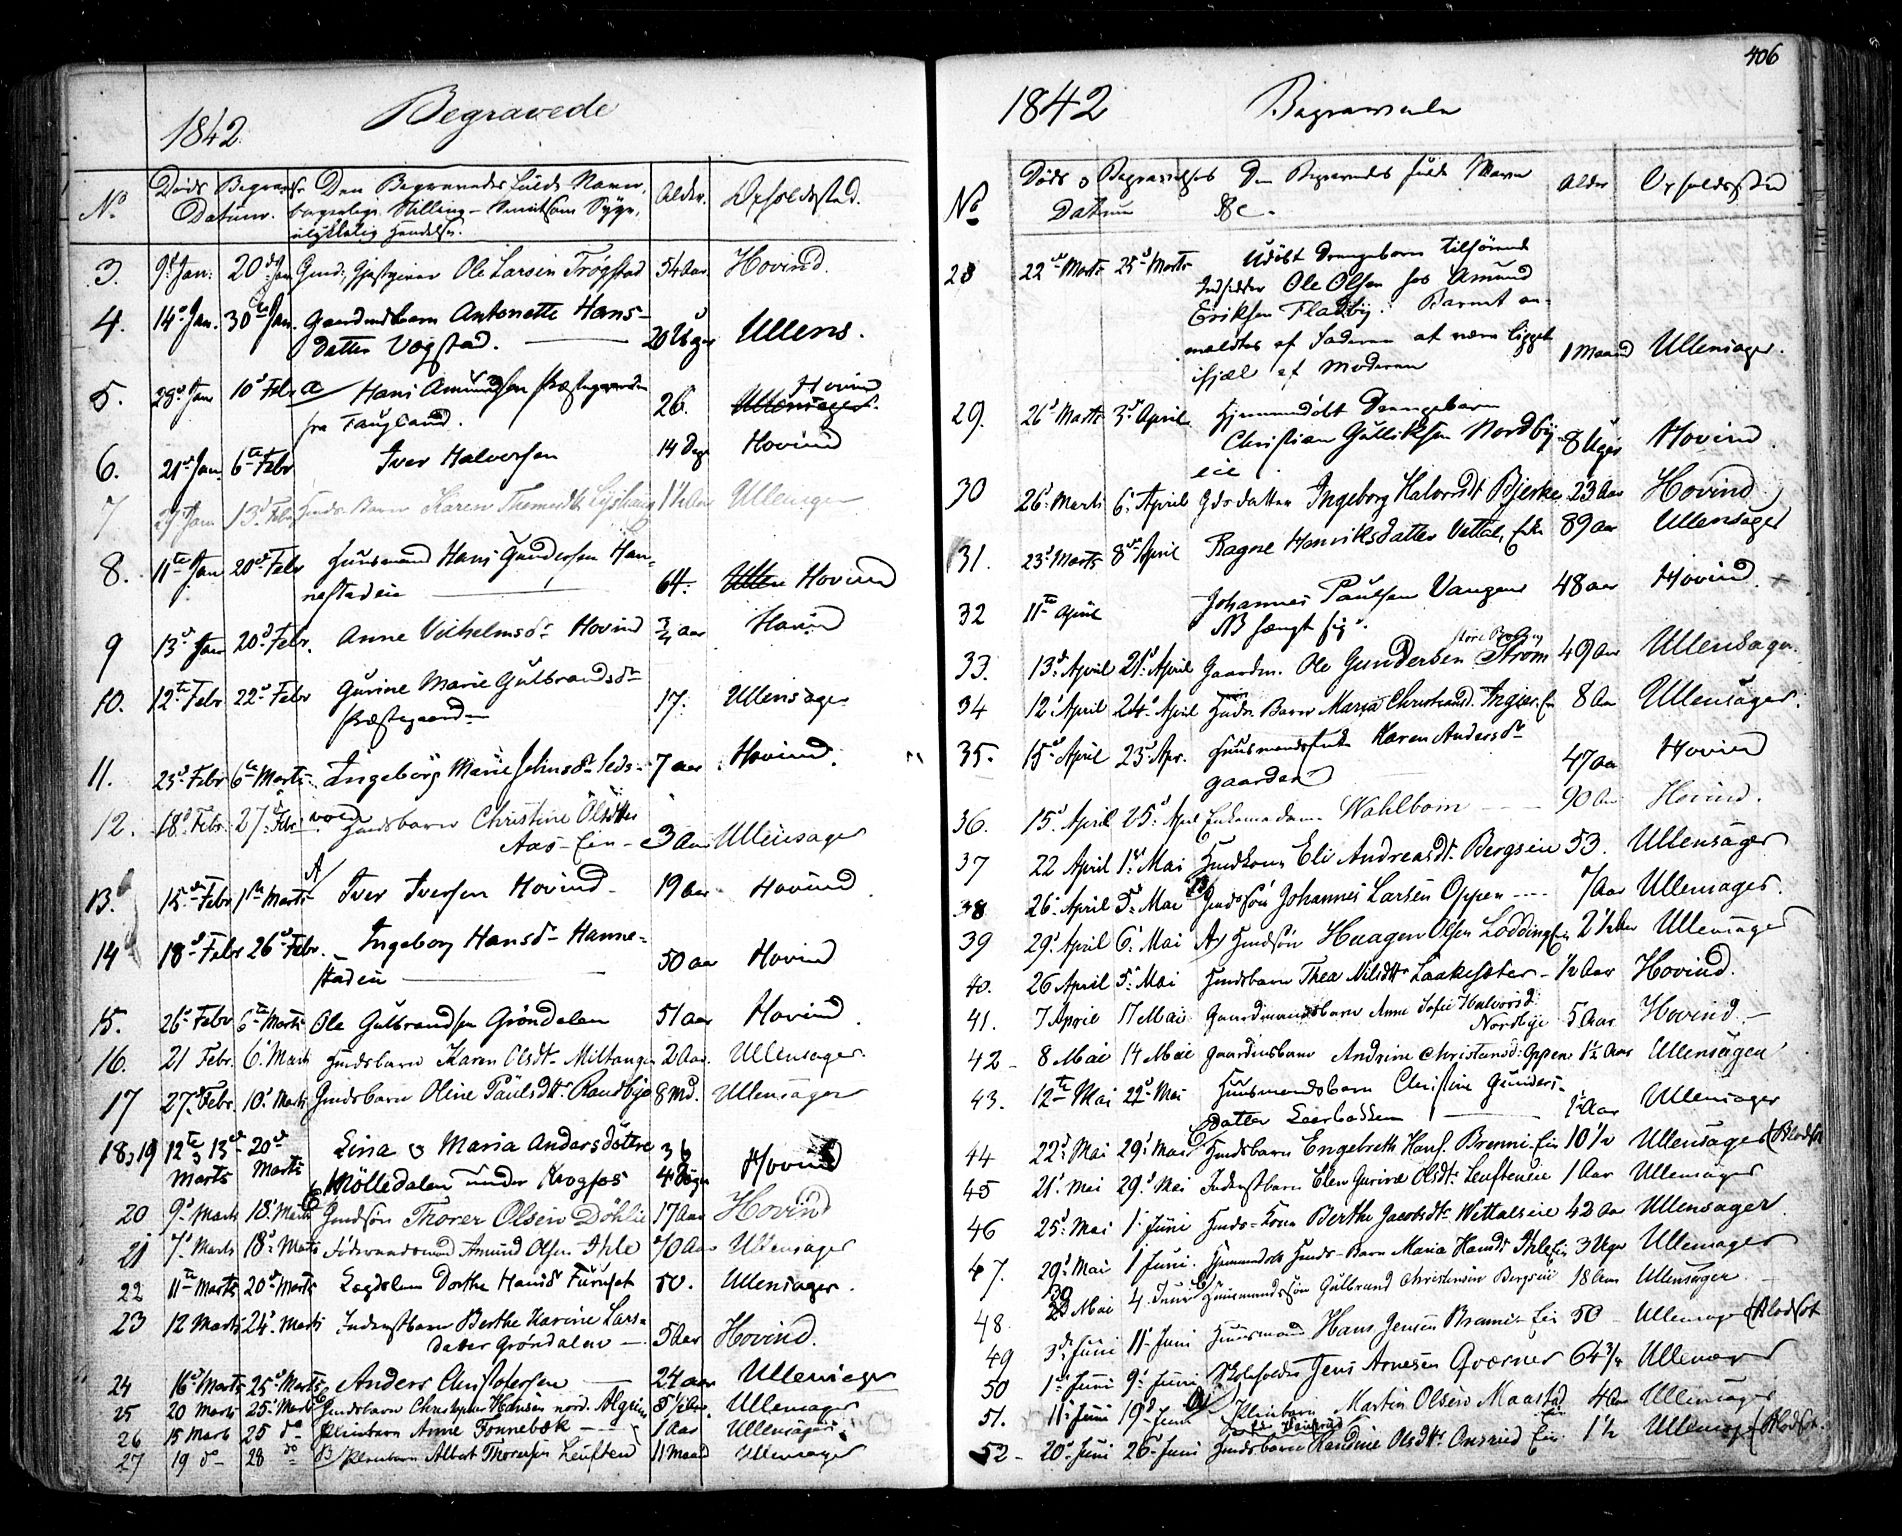 406
1842. Begravede
No
Døds Begrav. Den Begravedes fulde Navn, Alder. Opholdssted.
Datum. borgerlige Stilling
ulykkelig Hændelse.
3. 9d Jan: 20d Jan Gmd: Gjæstgiver Ole Larsen Trøgstad 54 Aar Hovind.
4. 14d Jan. 30te Jan. Gaardmdsbarn Antonette Hans-
datter Vogstad. 20 Uger Ullens.
5. 28d Jan 10d Febr a Hans Amundsen Præstegaarden Hovind
fra Faugland. 26. Ullensager.
6. 21d Jan 6te Febr Iver Halvorsen 14 Dage Hovind
7 29d Jan 13d Febr Hmds. Barn Karen Thomasdtr 1½ Aar Ullensager
8. 11te Jan 20d Febr Huusmand Hans Gundersen Han-
nestadeie 64. Ullen Hovind
9 13d Jan 20d Febr. Anne Vilhelmsdr Hovind ¾ aar Hovin
10. 12te Febr 22d Febr Gurine Marie Gulbrandsdr
Præstegaard 17. Ullensager
11. 23d Febr 6te Marts Ingeborg Marie Johnsdr 7 aar Hovind.
12. 18d Febr. 27d Febr. Hmdsbarn Christine Olsdtter
Aas-Eie 3 Aar Ullensager
13. 15de Febr 1ste Marts A/ Iver Iversen Hovind 19 Aar Hovind
14 18d Febr 26d Febr. Ingeborg Hansdr Hanne-
stadeie 50 aar Hovind
15. 26d Febr 6te Marts Ole Gulbrandsen Gröndalen 51 aar Hovind
16. 21 Febr. 6. Marts Hmdsbarn Karen Olsdtr. Miltangen 2 Aar. Ullensager.
17 27. Febr. 10. Marts Hmdsbarn Oline Paulsdtr. Randbye 8 Md. Ullensager
18, 19 12te & 13de 20d Lina & Maria Andersdøttre 3 &
Marts Marts Mölledalen under Krogfos 4 Dage Hovind
20 9d Marts 18. Marts Gmdsøn Thorer Olsen Döhlie 17 Aar Hovind
21 7d Marts 18d Marts Føderaadsmand Amund Olsen Ihle 70 Aar Ullensager
22 11te Marts 20d Marts Lægdslem Dorthe Hansd Furuset 50. Ullensager.
23 12 Marts 24. Marts Inderstbarn Berthe Karine Lars-
datter Gröndalen 5 Aar Hovind.
24 16d Marts 25d Marts Anders Christophersen 24 aar Ullensager
25 20 Marts 25. Marts Hmdsbarn Christopher Hansen nord. Algrim Ullensager
26 15 Marts 25 do Pleiebarn Anne Tonnebæk 1 Aar Ullensager
27 19 d 28 do B/ Pleiebarn Albert Thoresen Leuften 11 Maaned Ullensager
1842 Begravede
No Døds & Begravelses Den Begravedes fulde Navn Alder Opholdssted
Datum &c.
28 22d Marts 25d Marts Udöbt Drengebarn tilhörende
Indsidder Ole Olsen hos Amund
Eriksen Fladby. Barnet an-
maldtes af Faderen at være ligget
ihjæl af Moderen 1 Maaned Ullensager.
29. 26d Marts 3d April Hjemmedöbt Drengebarn
Christian Gulliksen Nordby-
eie 8 Uger Hovind
30 26. Marts 6. April Gdsdatter Ingeborg Halvorsdt Bjerke 23 Aar Hovind
31. 23d Marts 8de April Ragne Henriksdatter Vettal, Enke 89 aar Ullensager
32 11te April Johannes Paulsen Vangen 48 aar Hovind
NB hængt sig.
33. 13d April 21d April Gaardm. Ole Gundersen Ström 49 Aar Ullensager.
34 12. April 24. April Hmds. Barn Maria Christiansd. Ingier-Eie 8 Aar Ullensager.
35. 15d April 23d Apr. Huusmandsenke Karen Andersdr
gaarden 47 Aar Hovind
36. 15d April 25d April Enkemadame Wahlbom 90 Aar Hovind.
37 22 April 1ste Mai Hmdkone Eli Andreasdt. Bergseie 53. Ullensager
38 26. April 5. Mai Hmdssön Johannes Larsen Oppen 7 Aar Ullensager.
39 29. April 6. Mai A/ Hmdsön Haagen Olsen Lodding Eie 2½ Aar Ullensager
40. 26 April 5. Mai Hmdsbarn Thea Nilsdtr Laakesæter ½ Aar Hovind.
41. 7 April 17 Mai Gaardmandsbarn Anne Sofie Halvorsd.
Nordbye 5 Aar Hovind.
42 8 Mai 14 Mai Gaardmdsbarn Andrine Christiansd: Oppen 1½ Aar Ullensager
43. 12te Mai 22d Mai Huusmandsbarn Christine Gunders-
datter Leerbakken ½ Aar Ullensager
44 22d Mai 29. Mai Hmdsbarn Engebreth Hans. Brenni-Eie 10½ Ullensager (Blodsot
45 21. Mai 29d Mai Inderstbarn Elen Gurine Olsdt. Leufteneie 1 Aar Ullensager
46 25d Mai 1. Juni Hmds-Kone Berthe Jacobsdtr Wettaleie 42 Aar Ullensager
47. 29d Mai 1 Juni. Hjemmedöbt Hmds-Barn Maria Hansdt Ihle Eie 3 Uger Ullensager
48 30 Mai 4. Juni Huusmandssön Gulbrand Christensen Bergseie 18 Aar Ullensager
49 3de Juni 11d Juni Huusmand Hans Jensen Brenni-Eie 50 Ullensager (Blodsot
50 1ste Juni 9. Juni Skoleholder Jens Arnesen Qværner 64¾ Ullensager
51. 11. Juni 19d Juni Pleiebarn Martin Olsen Maastad Eie 4 Aar Ullensager
52 20d Juni 26d Juni Hmdsbarn Randine Olsdtr. Onsrud Eie 1½ Ullensager (Blodsot.